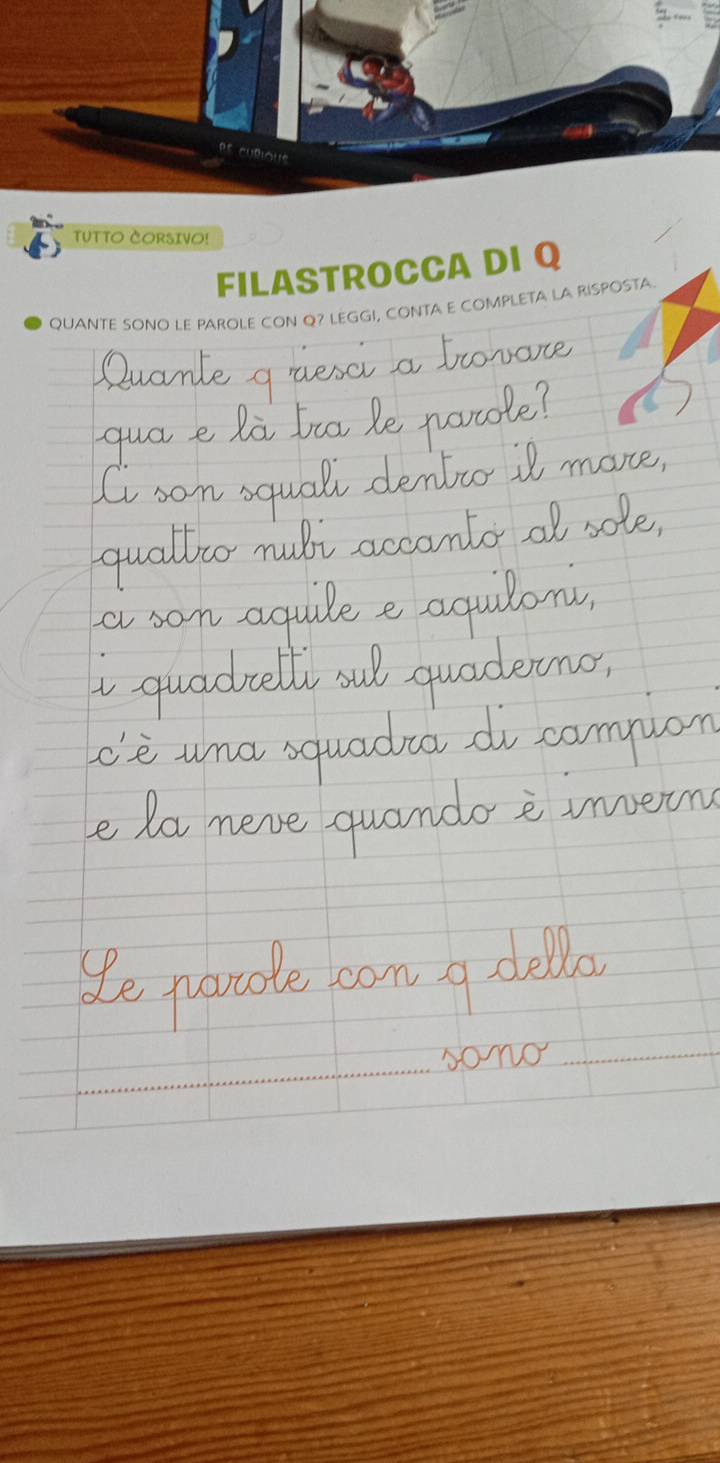 BE CURIOUS
TUTTO CORSIVO!
FILASTROCCA DI Q
QUANTE SONO LE PAROLE CON Q? LEGGI, CONTA E COMPLETA LA RISPOSTA.
Quante q riesci a trovare
qua e là tra le parole?
Ci son squali dentro il mare,
quattro nubi accanto al sole,
ci son aquile e aquiloni,
i quadretti sul quaderno,
c'è una squadra di campion
e la neve quando è invern
Le parole con q della
.......................... sono ..............